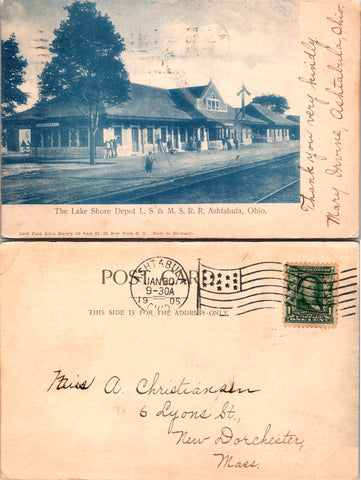 Thank you very kindly.
Mary Irvine Ashtabula, Ohio.
The Lake Shore Depot L. S. & M. S. R. R. Ashtabula, Ohio.
Made in Germany.
POST CARD
ASHTABULA
JAN 30
9-30A
1905
OHIO
THIS SIDE IS FOR THE ADDRESS ONLY.
Miss A. Christiansen
6 Lyons St.,
New Dorchester,
Mass.